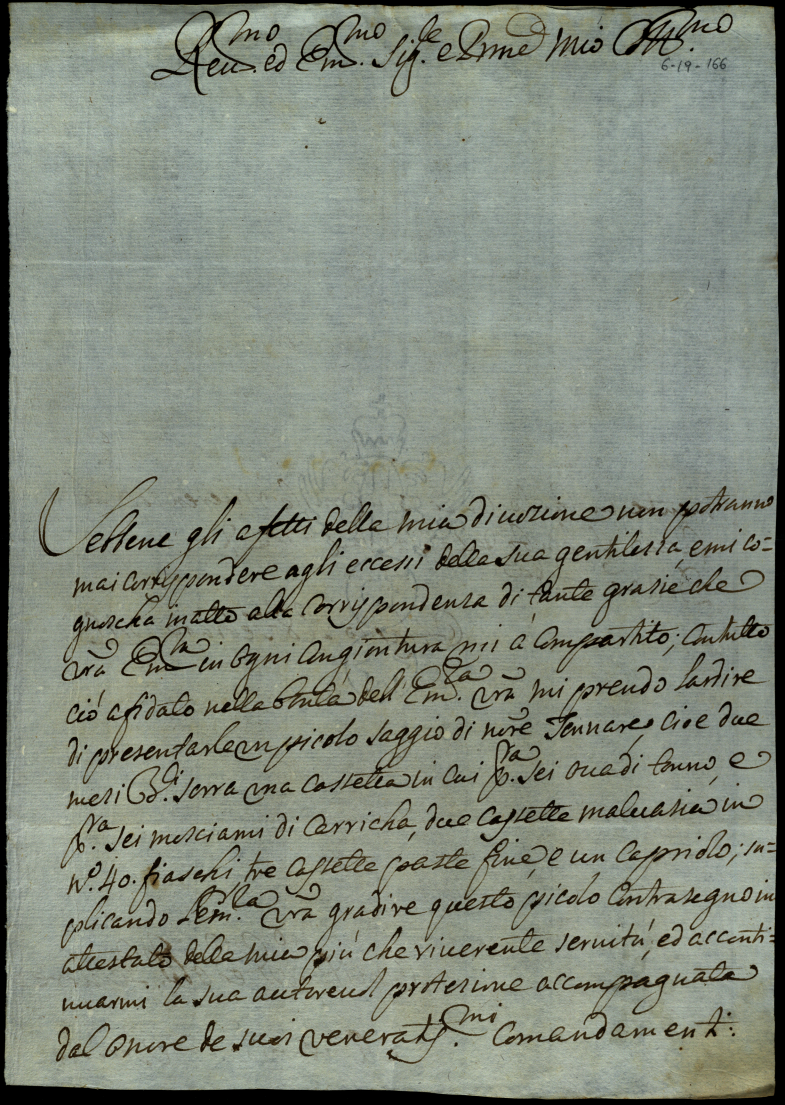 Reu.mo ed Em.mo Sig.re e Prne Mio Coll.mo
6-19-166
Sebbene gli afetti della mia diuozione non potranno
mai corrispondere agli eccessi della sua gentilessa, e mi co=
gnoscha inatto alla corrispondenza di tante grasie che
vrã Em.za in ogni congiontura mi à compartito; contutto
ciò afidato nella bontà dell Em.za vrã mi prendo lardire
di presentarle un picolo saggio di nõre Tonnare, cioè due
mesi B. di sorra una cassetta in cui p.ra sei oua di tonno, e
p.ra sei mosciami di Carricha, due cassette maluasia in
N.o 40. fiaschi tre cassette paste fine, e un capriolo; su=
plicando l'Em.za vrã gradire questo picolo contrasegno in
attestato della mia più che riuerente seruitù, ed acconti=
nuarmi la sua autoreuol protezione accompagnata
dal onore de suoi veneratis.mi Comandamenti: